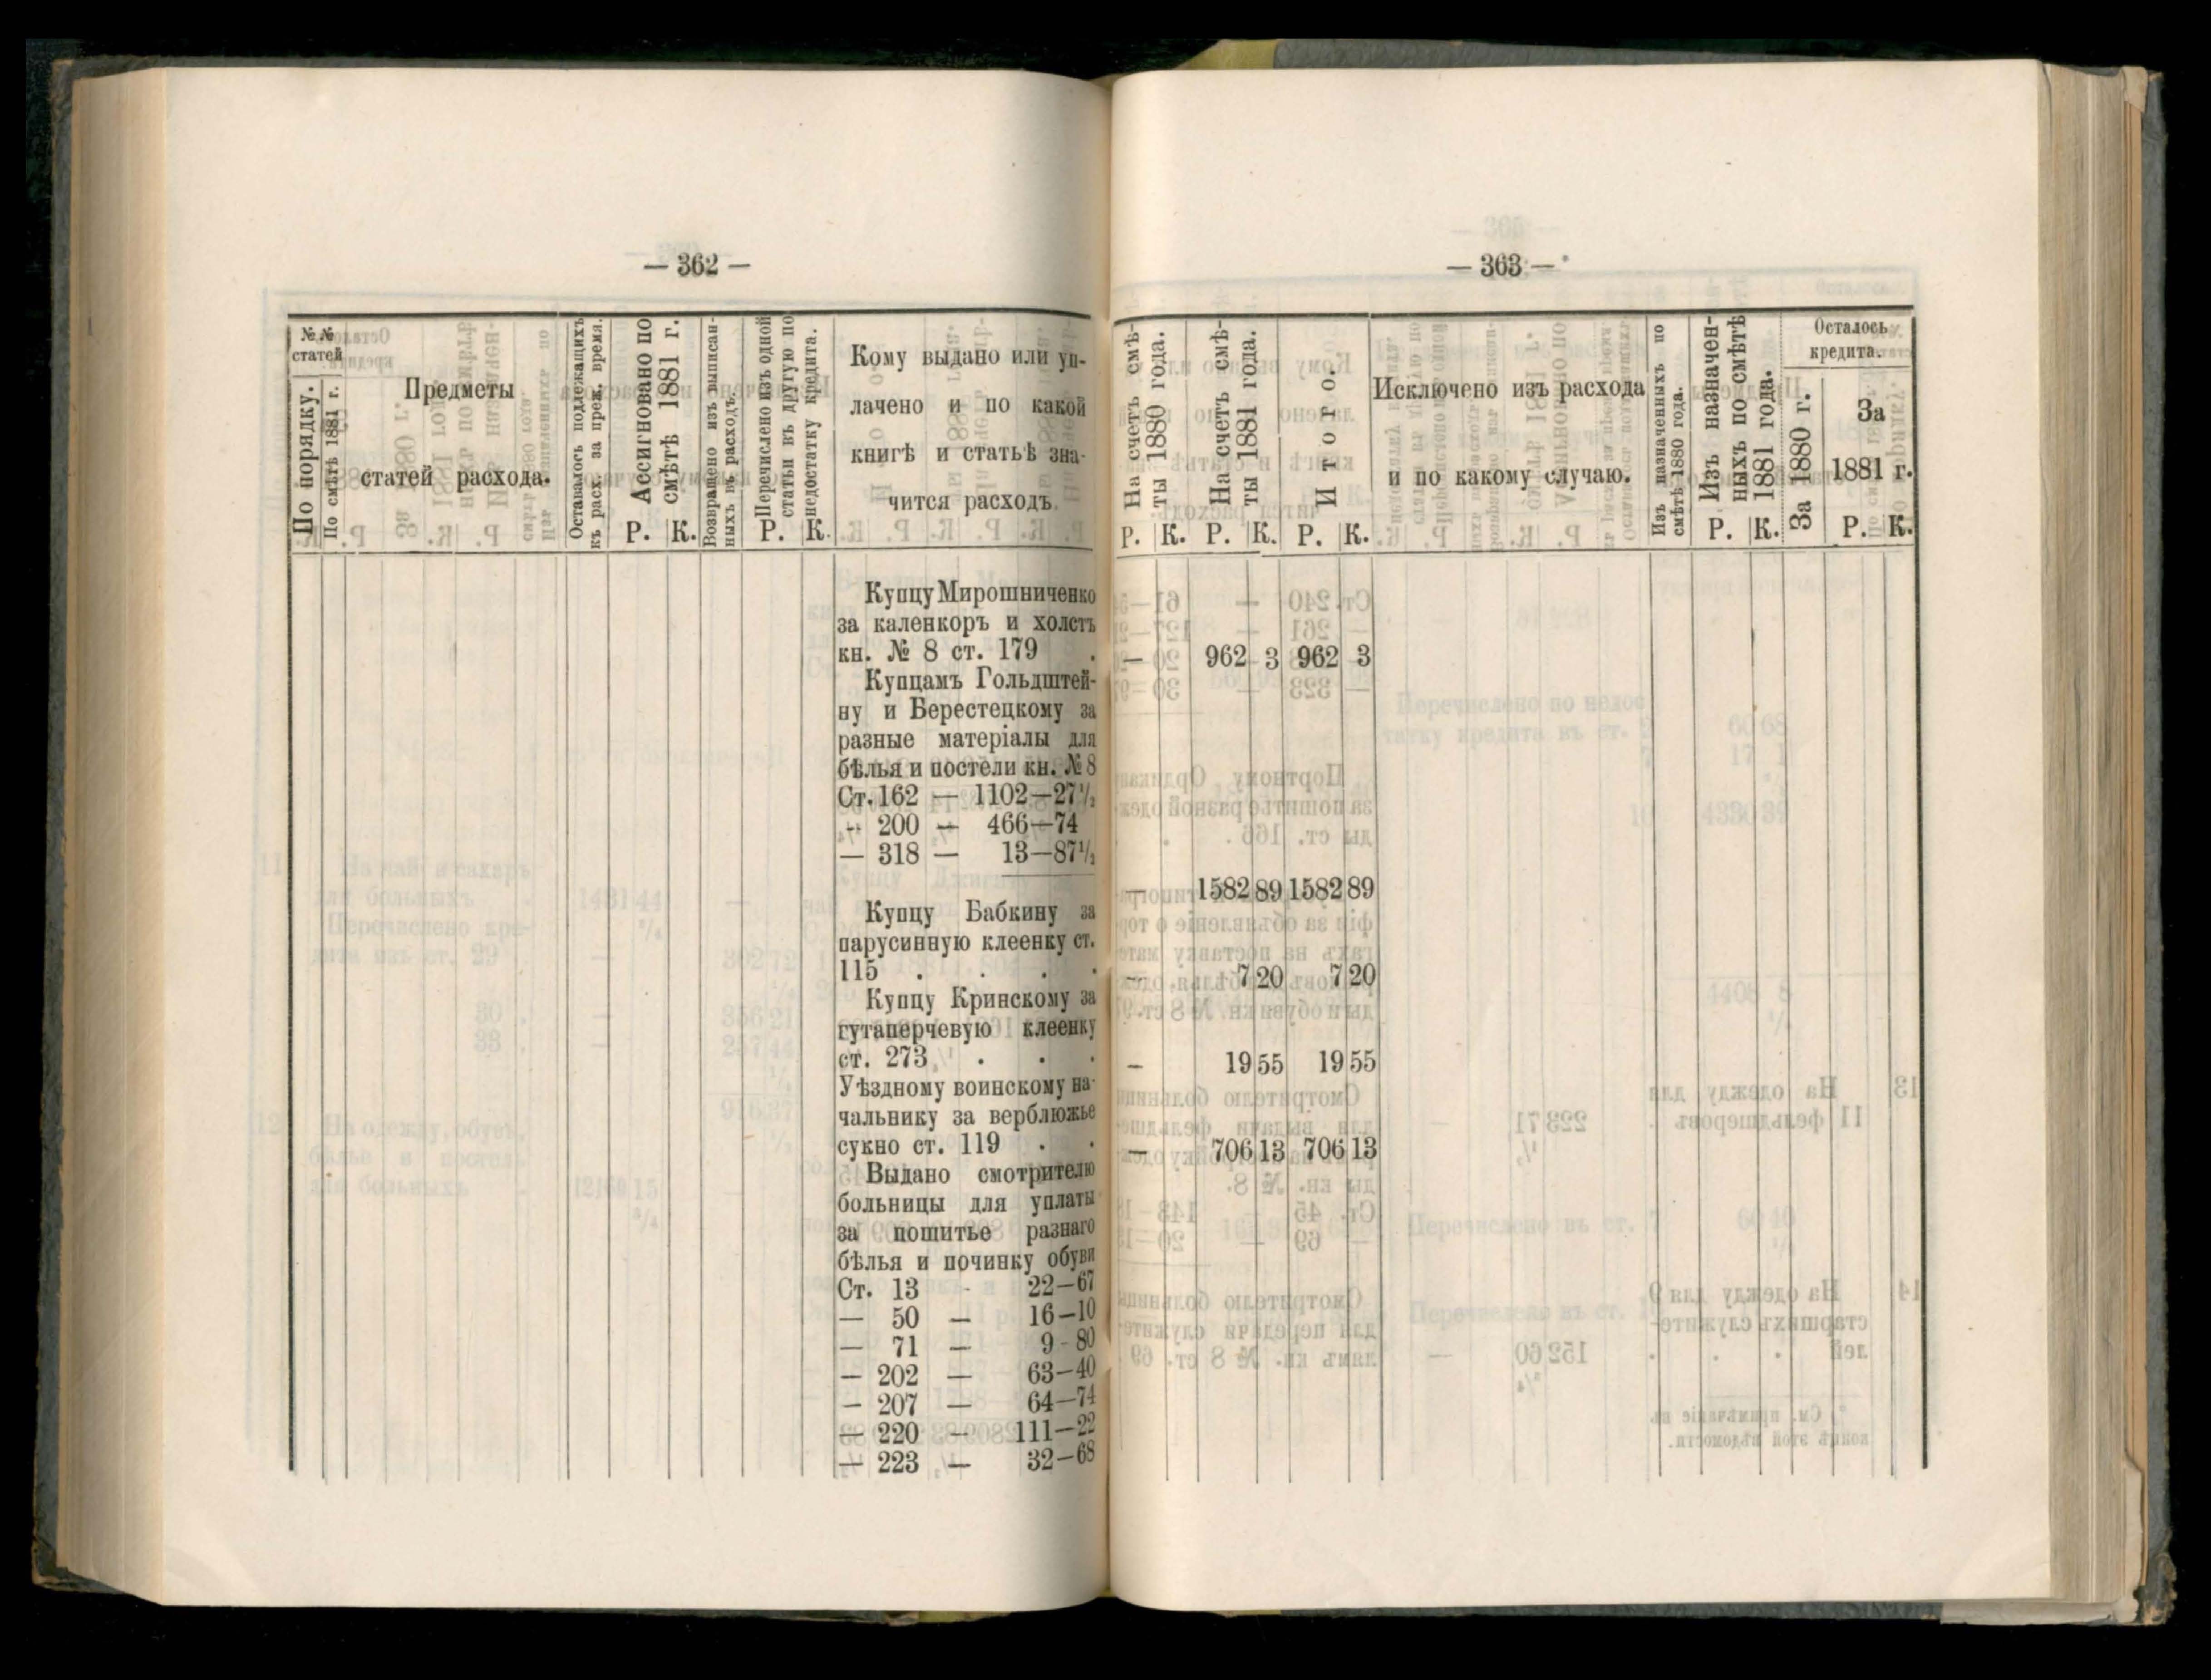 — 362 —
№№ статей
По порядку.
По смѣтѣ 1881 г.
Предметы
статей расхода.
Оставалось подлежащихъ
къ расх. за преж. время.
Ассигновано по
смѣтѣ 1881 г.
Р. К.
Возвращено изъ выписан-
ныхъ въ расходъ.
Перечислено изъ одной
статьи въ другую по
недостатку кредита.
Р. К.
Кому выдано или уп-
лачено и по какой
книгѣ и статьѣ зна-
чится расходъ.
Купцу Мирошниченко
за каленкоръ и холстъ
кн. № 8 ст. 179 .
Купцамъ Гольдштей-
ну и Берестецкому за
разные матеріалы для
бѣлья и постели кн. № 8
Ст. 162 — 1102—27½
— 200 — 466—74
— 318 — 13—87½
Купцу Бабкину за
парусинную клеенку ст.
115 . . . .
Купцу Кринскому за
гутаперчевую клеенку
ст. 273 . . .
Уѣздному воинскому на-
чальнику за верблюжье
сукно ст. 119 . .
Выдано смотрителю
больницы для уплаты
за пошитье разнаго
бѣлья и починку обуви
Ст. 13 - 22—67
— 50 — 16—10
— 71 — 9-80
— 202 — 63—40
— 207 — 64—74
— 220 — 111—22
— 223 — 32—68
— 363 —
На счетъ смѣ-
ты 1880 года.
Р. К.
На счетъ смѣ-
ты 1881 года.
Р. К.
Итого.
Р. К.
Исключено изъ расхода
и по какому случаю.
Изъ назначенныхъ по
смѣтѣ 1880 года.
Изъ назначен-
ныхъ по смѣтѣ
1881 года.
Р. К.
Осталось
кредита.
За 1880 г.
За
1881 г.
Р. К.
— 962 3 962 3
— 1582 89 1582 89
— 7 20 7 20
— 19 55 19 55
— 706 13 706 13